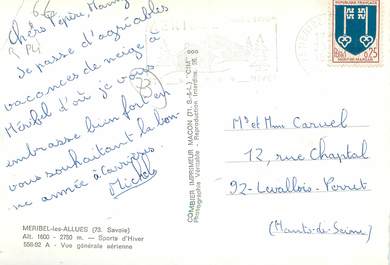 Chers Pépère, Mamy
Je passe d'agréables
vacances de neige à
Méribel d'où je vous
embrasse bien fort en
vous souhaitant la bon-
ne année à Carrières.
Michel
MERIBEL-les-ALLUES (73. Savoie)
Alt. 1600 - 2750 m. — Sports d'Hiver
558-92 A - Vue générale aérienne
COMBIER IMPRIMEUR MACON (71. S.-&-L.) "CIM"
Photographie Véritable - Reproduction Interdite
REPUBLIQUE FRANCAISE
0,25
MONT-DE-MARSAN
Mr et Mme Carvel
12, rue Chaptal
92-Levallois-Perret
(Hauts-de-Seine)